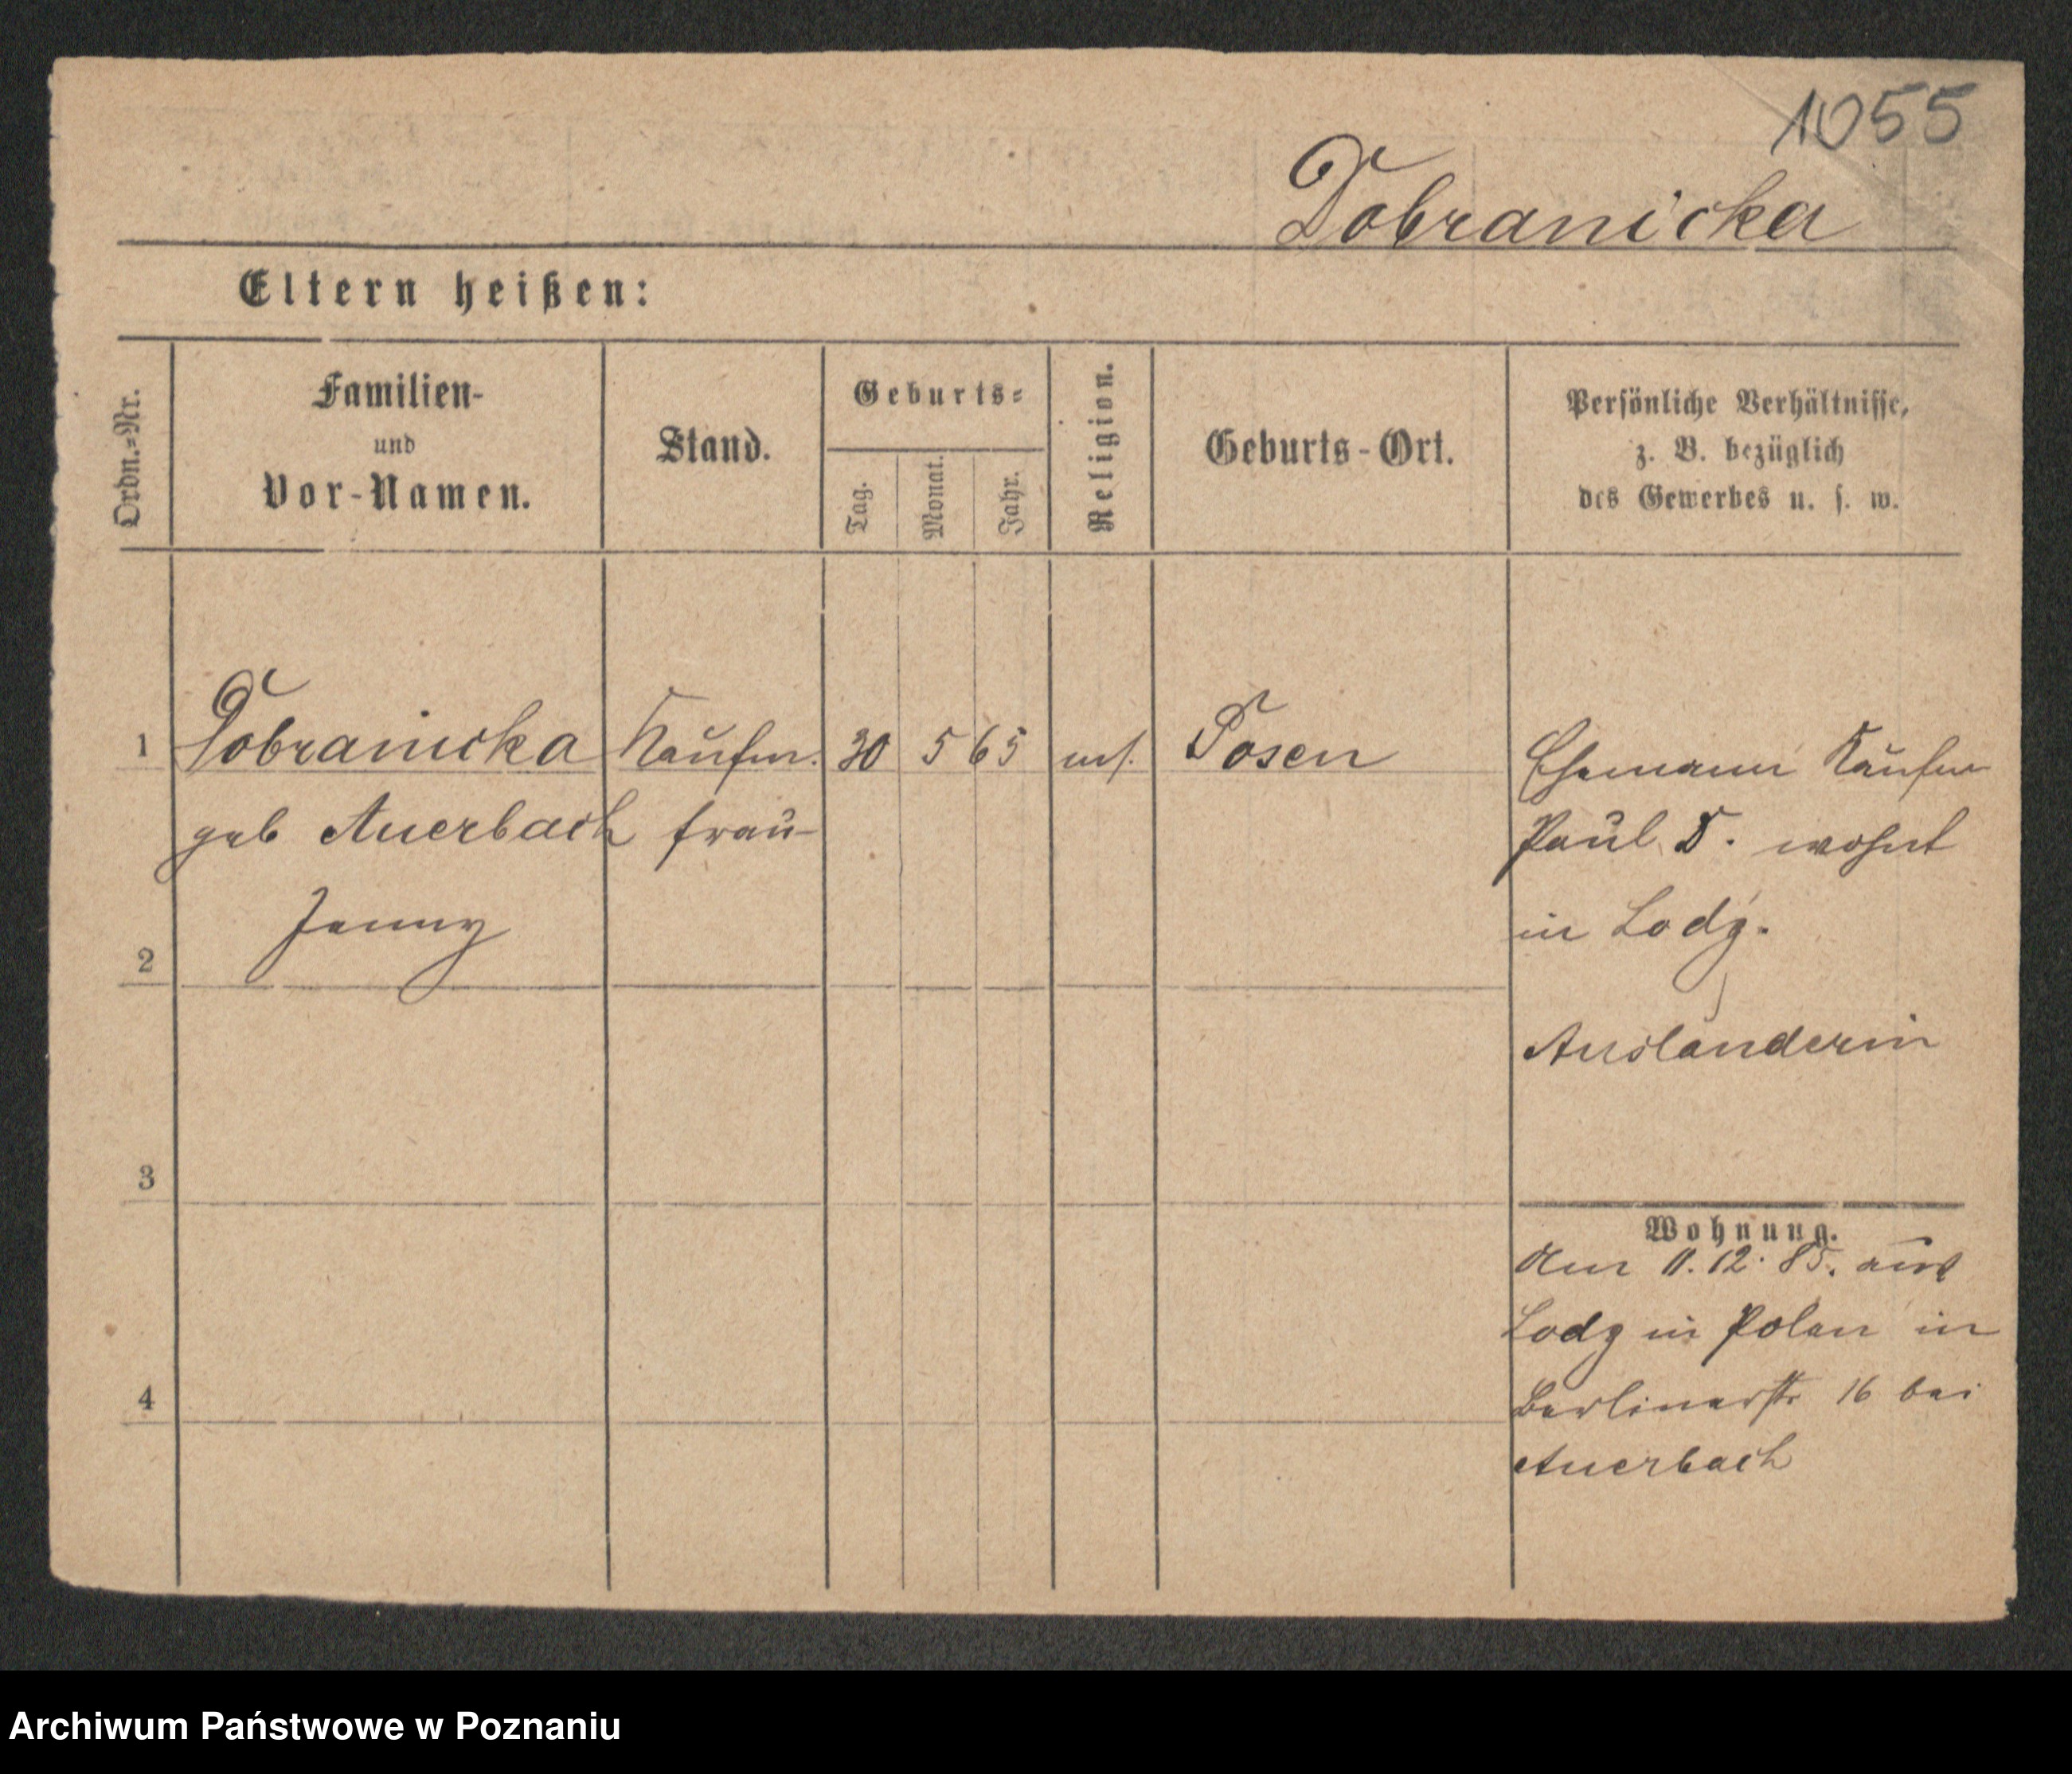 1055
Dobranicka
Eltern heißen:
Ordn.=Nr.
Familien-
und
Vor-Namen.
Stand.
Geburts=
Tag.
Monat.
Jahr.
Religion.
Geburts-Ort.
Persönliche Verhältnisse,
z. B. bezüglich
des Gewerbes u. s. w.
1 Dobranicka Kaufm. 30 5 65 mos. Posen
geb Auerbach frau
Jenny
Ehemann Kaufm
Paul D. wohnt
in Lodz.
Ausländerin
2
3
4
Wohnung.
Am 11.12.85. aus
Lodz in Polen in
Berlinerstr 16 bei
Auerbach
Archiwum Państwowe w Poznaniu